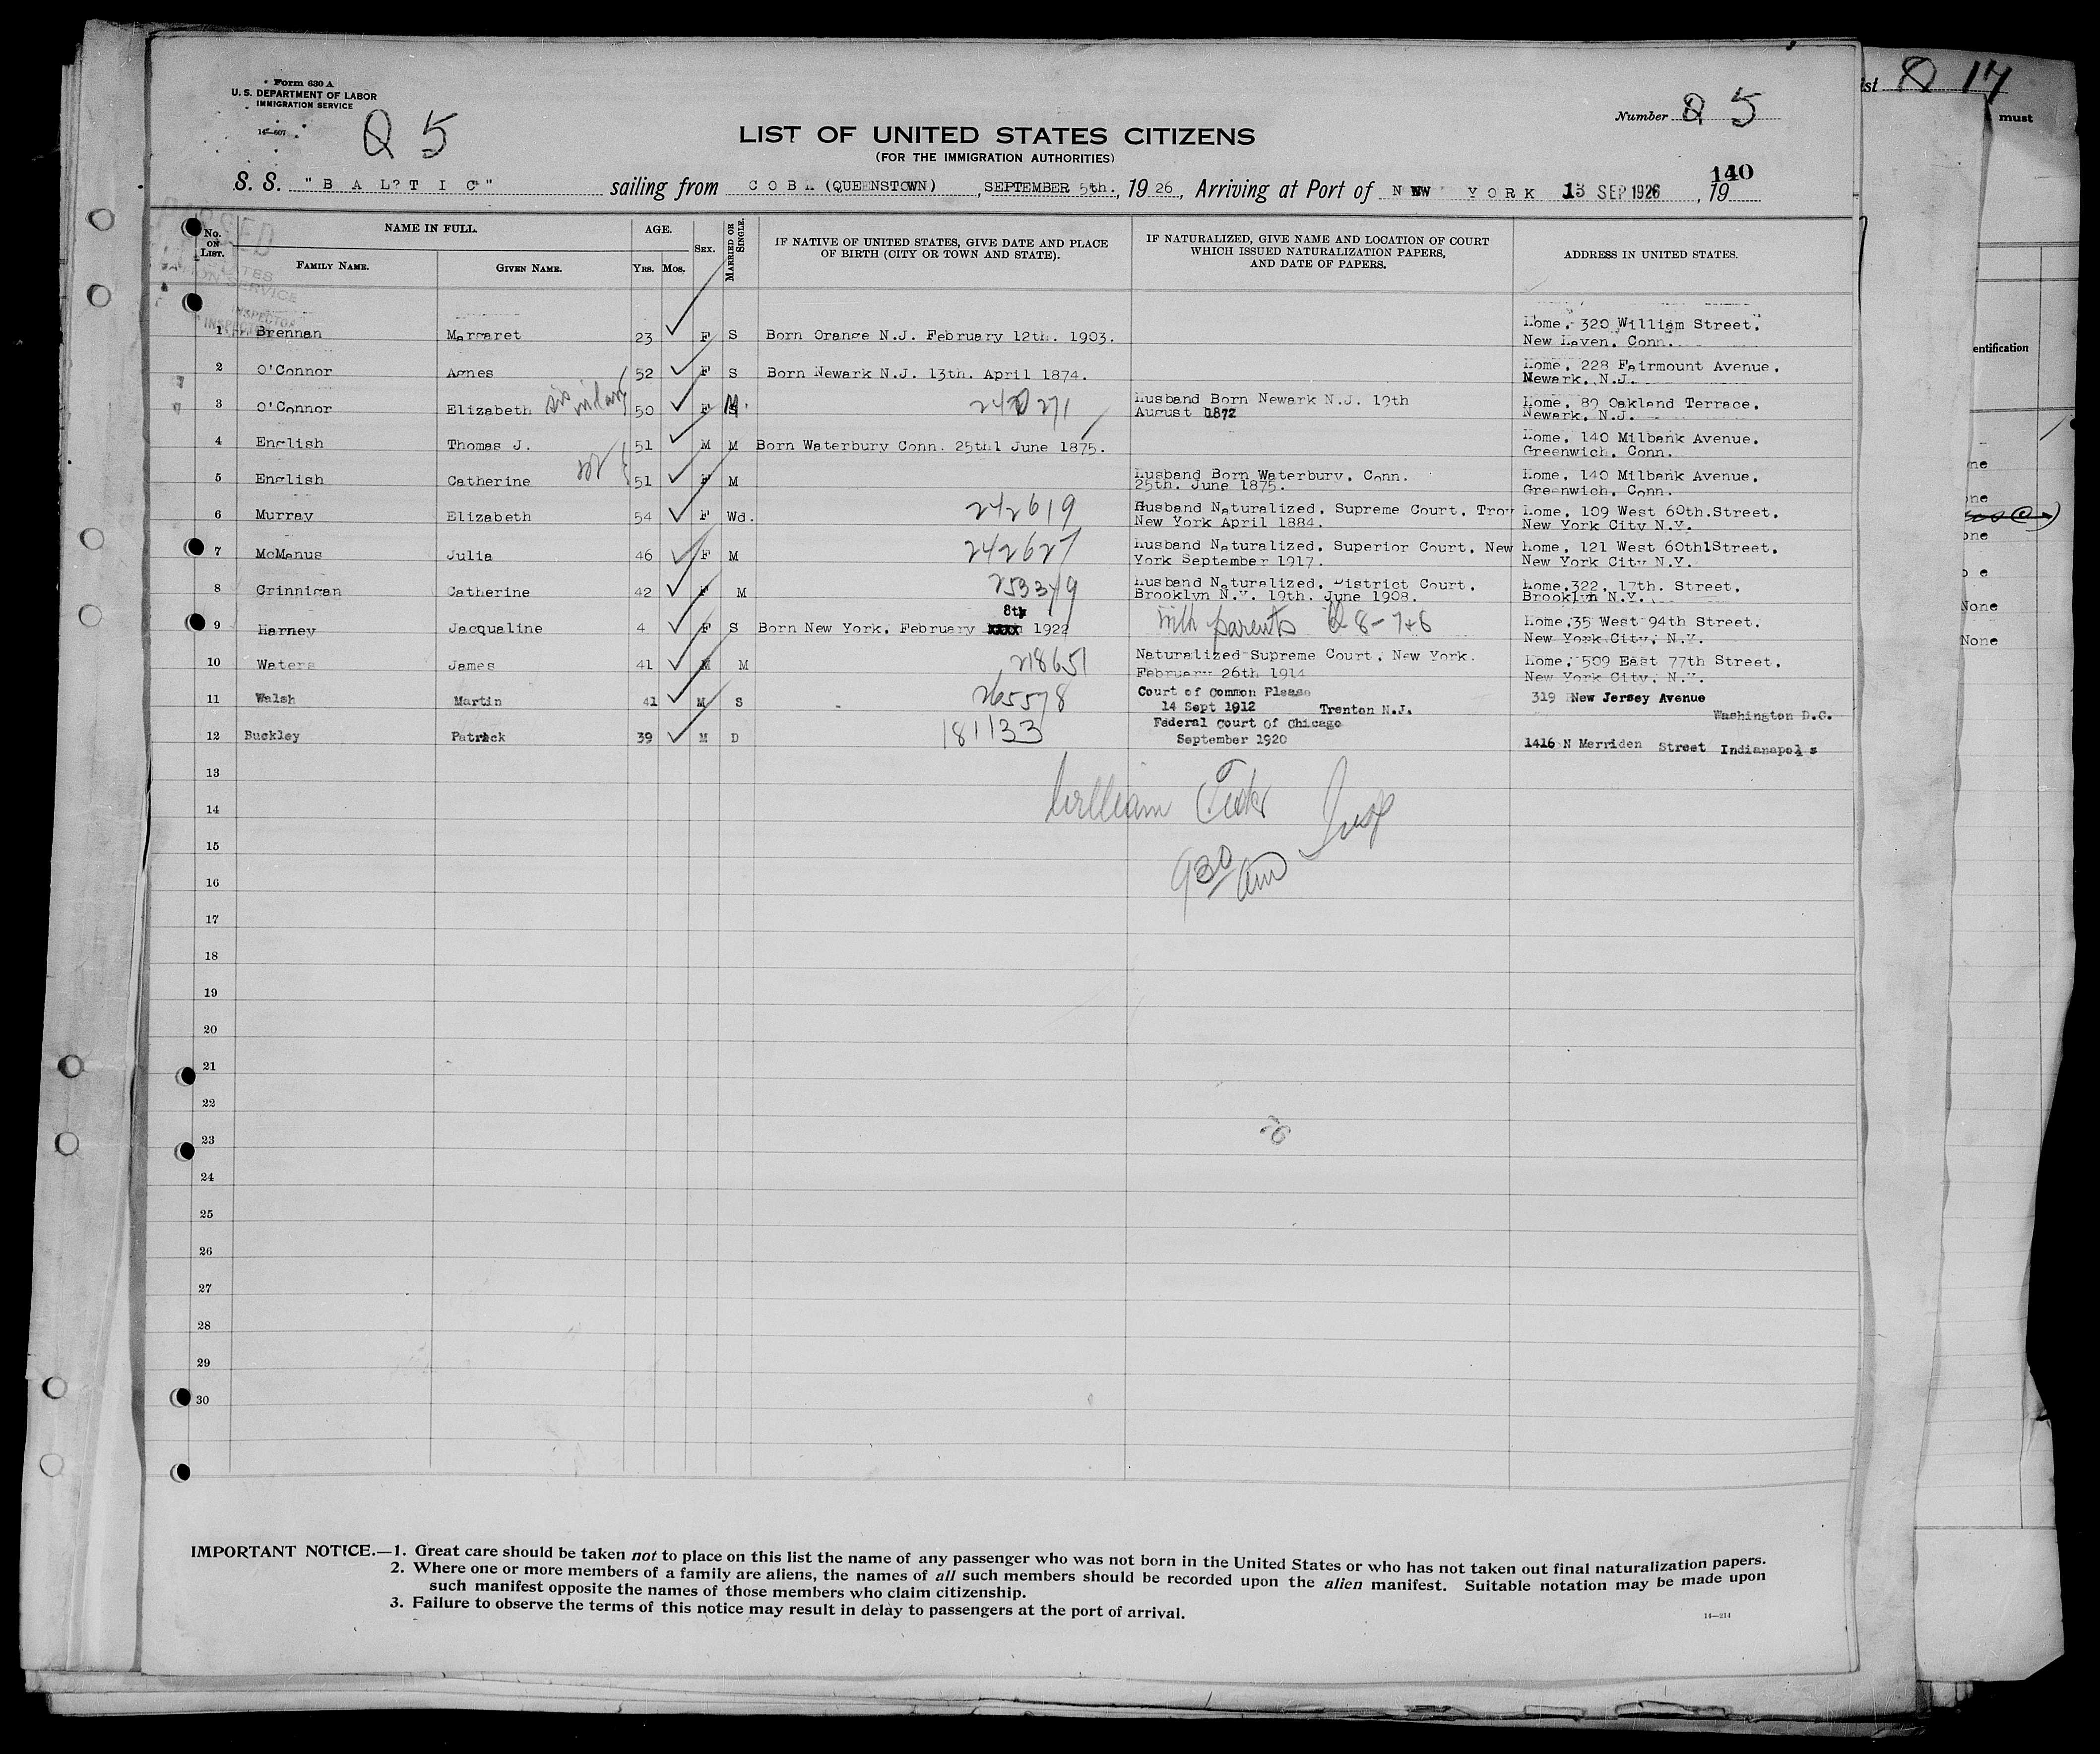 Form 630 A
U. S. DEPARTMENT OF LABOR
IMMIGRATION SERVICE
14—607
Q 5
Number Q 5
LIST OF UNITED STATES CITIZENS
(FOR THE IMMIGRATION AUTHORITIES)
140
S. S. "B A L T I C" sailing from C O B H (QUEENSTOWN), SEPTEMBER 5th., 19 26, Arriving at Port of NEW Y O R K 13 SEP 1926, 19
No. ON LIST. NAME IN FULL. FAMILY NAME. GIVEN NAME. AGE. YRS. MOS. SEX. MARRIED OR SINGLE. IF NATIVE OF UNITED STATES, GIVE DATE AND PLACE OF BIRTH (CITY OR TOWN AND STATE). IF NATURALIZED, GIVE NAME AND LOCATION OF COURT WHICH ISSUED NATURALIZATION PAPERS, AND DATE OF PAPERS. ADDRESS IN UNITED STATES.
1 Brennan Margaret 23 F S Born Orange N.J. February 12th. 1903. Home. 320 William Street.
New Haven. Conn.
2 O'Connor Agnes 52 F S Born Newark N.J. 13th. April 1874. Home. 228 Fairmount Avenue.
Newark. N.J.
3 O'Connor Elizabeth sis in law 50 F M. 242271 Husband Born Newark N.J. 19th Home. 89 Oakland Terrace.
August 1872 Newark. N.J.
4 English Thomas J. 51 M M Born Waterbury Conn. 25th June 1875. Home. 140 Milbank Avenue.
Greenwich. Conn.
5 English Catherine 51 F M Husband Born Waterbury. Conn. Home. 140 Milbank Avenue.
25th. June 1875. Greenwich. Conn.
6 Murray Elizabeth 54 F Wd. 242619 Husband Naturalized. Supreme Court. Troy Home. 109 West 60th.Street.
New York April 1884. New York City N.Y.
7 McManus Julia 46 F M 242627 Husband Naturalized. Superior Court. New Home. 121 West 60th Street.
York September 1917. New York City N.Y.
8 Grinnigan Catherine 42 F M 253379 Husband Naturalized. District Court. Home.322. 17th. Street.
Brooklyn N.Y. 19th. June 1908. Brooklyn N.Y.
9 Harney Jacqueline 4 F S Born New York. February 8th 1922 with parents Q 8-7+6 Home.35 West 94th Street.
New York City. N.Y.
10 Waters James 41 M M 218651 Naturalized Supreme Court. New York. Home. 509 East 77th Street.
February 26th 1914 New York City. N.Y.
11 Walsh Martin 41 M S 265578 Court of Common Please 319 New Jersey Avenue
14 Sept 1912 Trenton N.J. Washington D.C.
12 Buckley Patrick 39 M D 181133 Federal Court of Chicago
September 1920 1416 N Merriden Street Indianapolis
13
William Insp
14
15
930 am
16
17
18
19
20
21
22
23
24
25
26
27
28
29
30
IMPORTANT NOTICE.—1. Great care should be taken not to place on this list the name of any passenger who was not born in the United States or who has not taken out final naturalization papers.
2. Where one or more members of a family are aliens, the names of all such members should be recorded upon the alien manifest. Suitable notation may be made upon
such manifest opposite the names of those members who claim citizenship.
3. Failure to observe the terms of this notice may result in delay to passengers at the port of arrival.
14—214
ist Q 17
must
entification
None
None